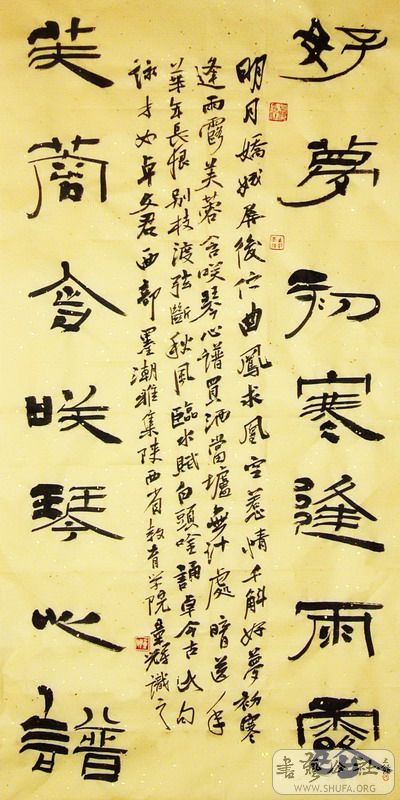 好夢初寒逢雨露
明月嬌娥屏後佇曲鳳求凰空惹情千斛好夢初寒
逢雨露芙蓉含咲琴心譜買酒當壚無計處暗送年
華年長恨別枝渡弦斷秋風臨水賦白頭吟誦卓今古此句
詠才女卓文君西部墨潮雅集陝西省教育学院輝識之
芙蓉含咲琴心譜
書藝公社
WWW.SHUFA.ORG